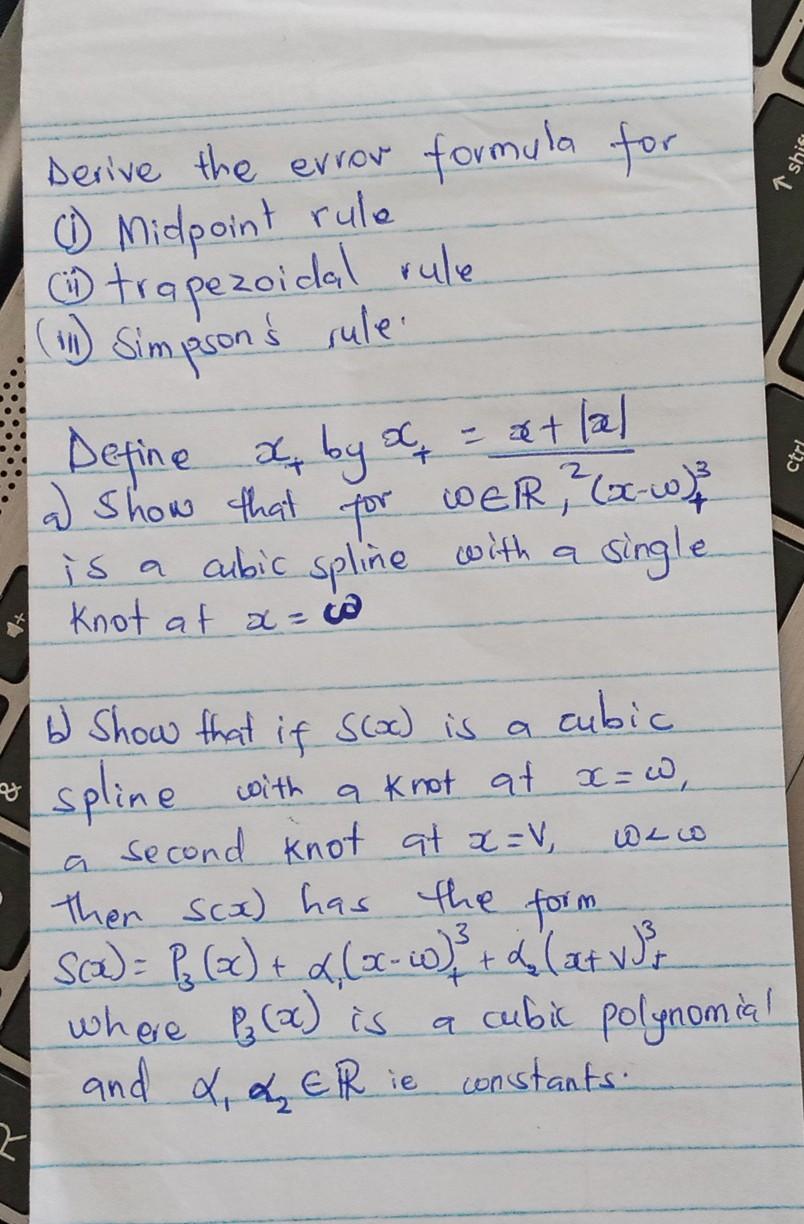 Derive the error formula for
(i) Midpoint rule
(ii) trapezoidal rule
(iii) Simpson's rule.
Define x₊ by x₊ = x + |x| / 2
a) Show that for ω∈ℝ, (x-ω)³₊
is a cubic spline with a single
Knot at x = ω
b) Show that if S(x) is a cubic
spline with a knot at x = ω,
a second knot at x = V, ω < ω
then S(x) has the form
S(x) = P₃(x) + α₁(x-ω)³₊ + α₂(x+V)³₊
where P₃(x) is a cubic polynomial
and α₁ α₂ ∈ ℝ ie constants.
shif
ctrl
&
R